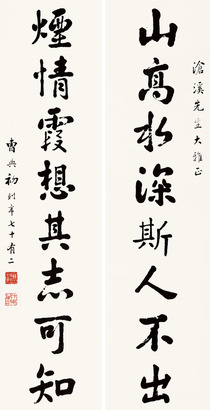 滄溪先生大雅正
山高水深斯人不出
煙情霞想其志可知
曹典初時年七十有二